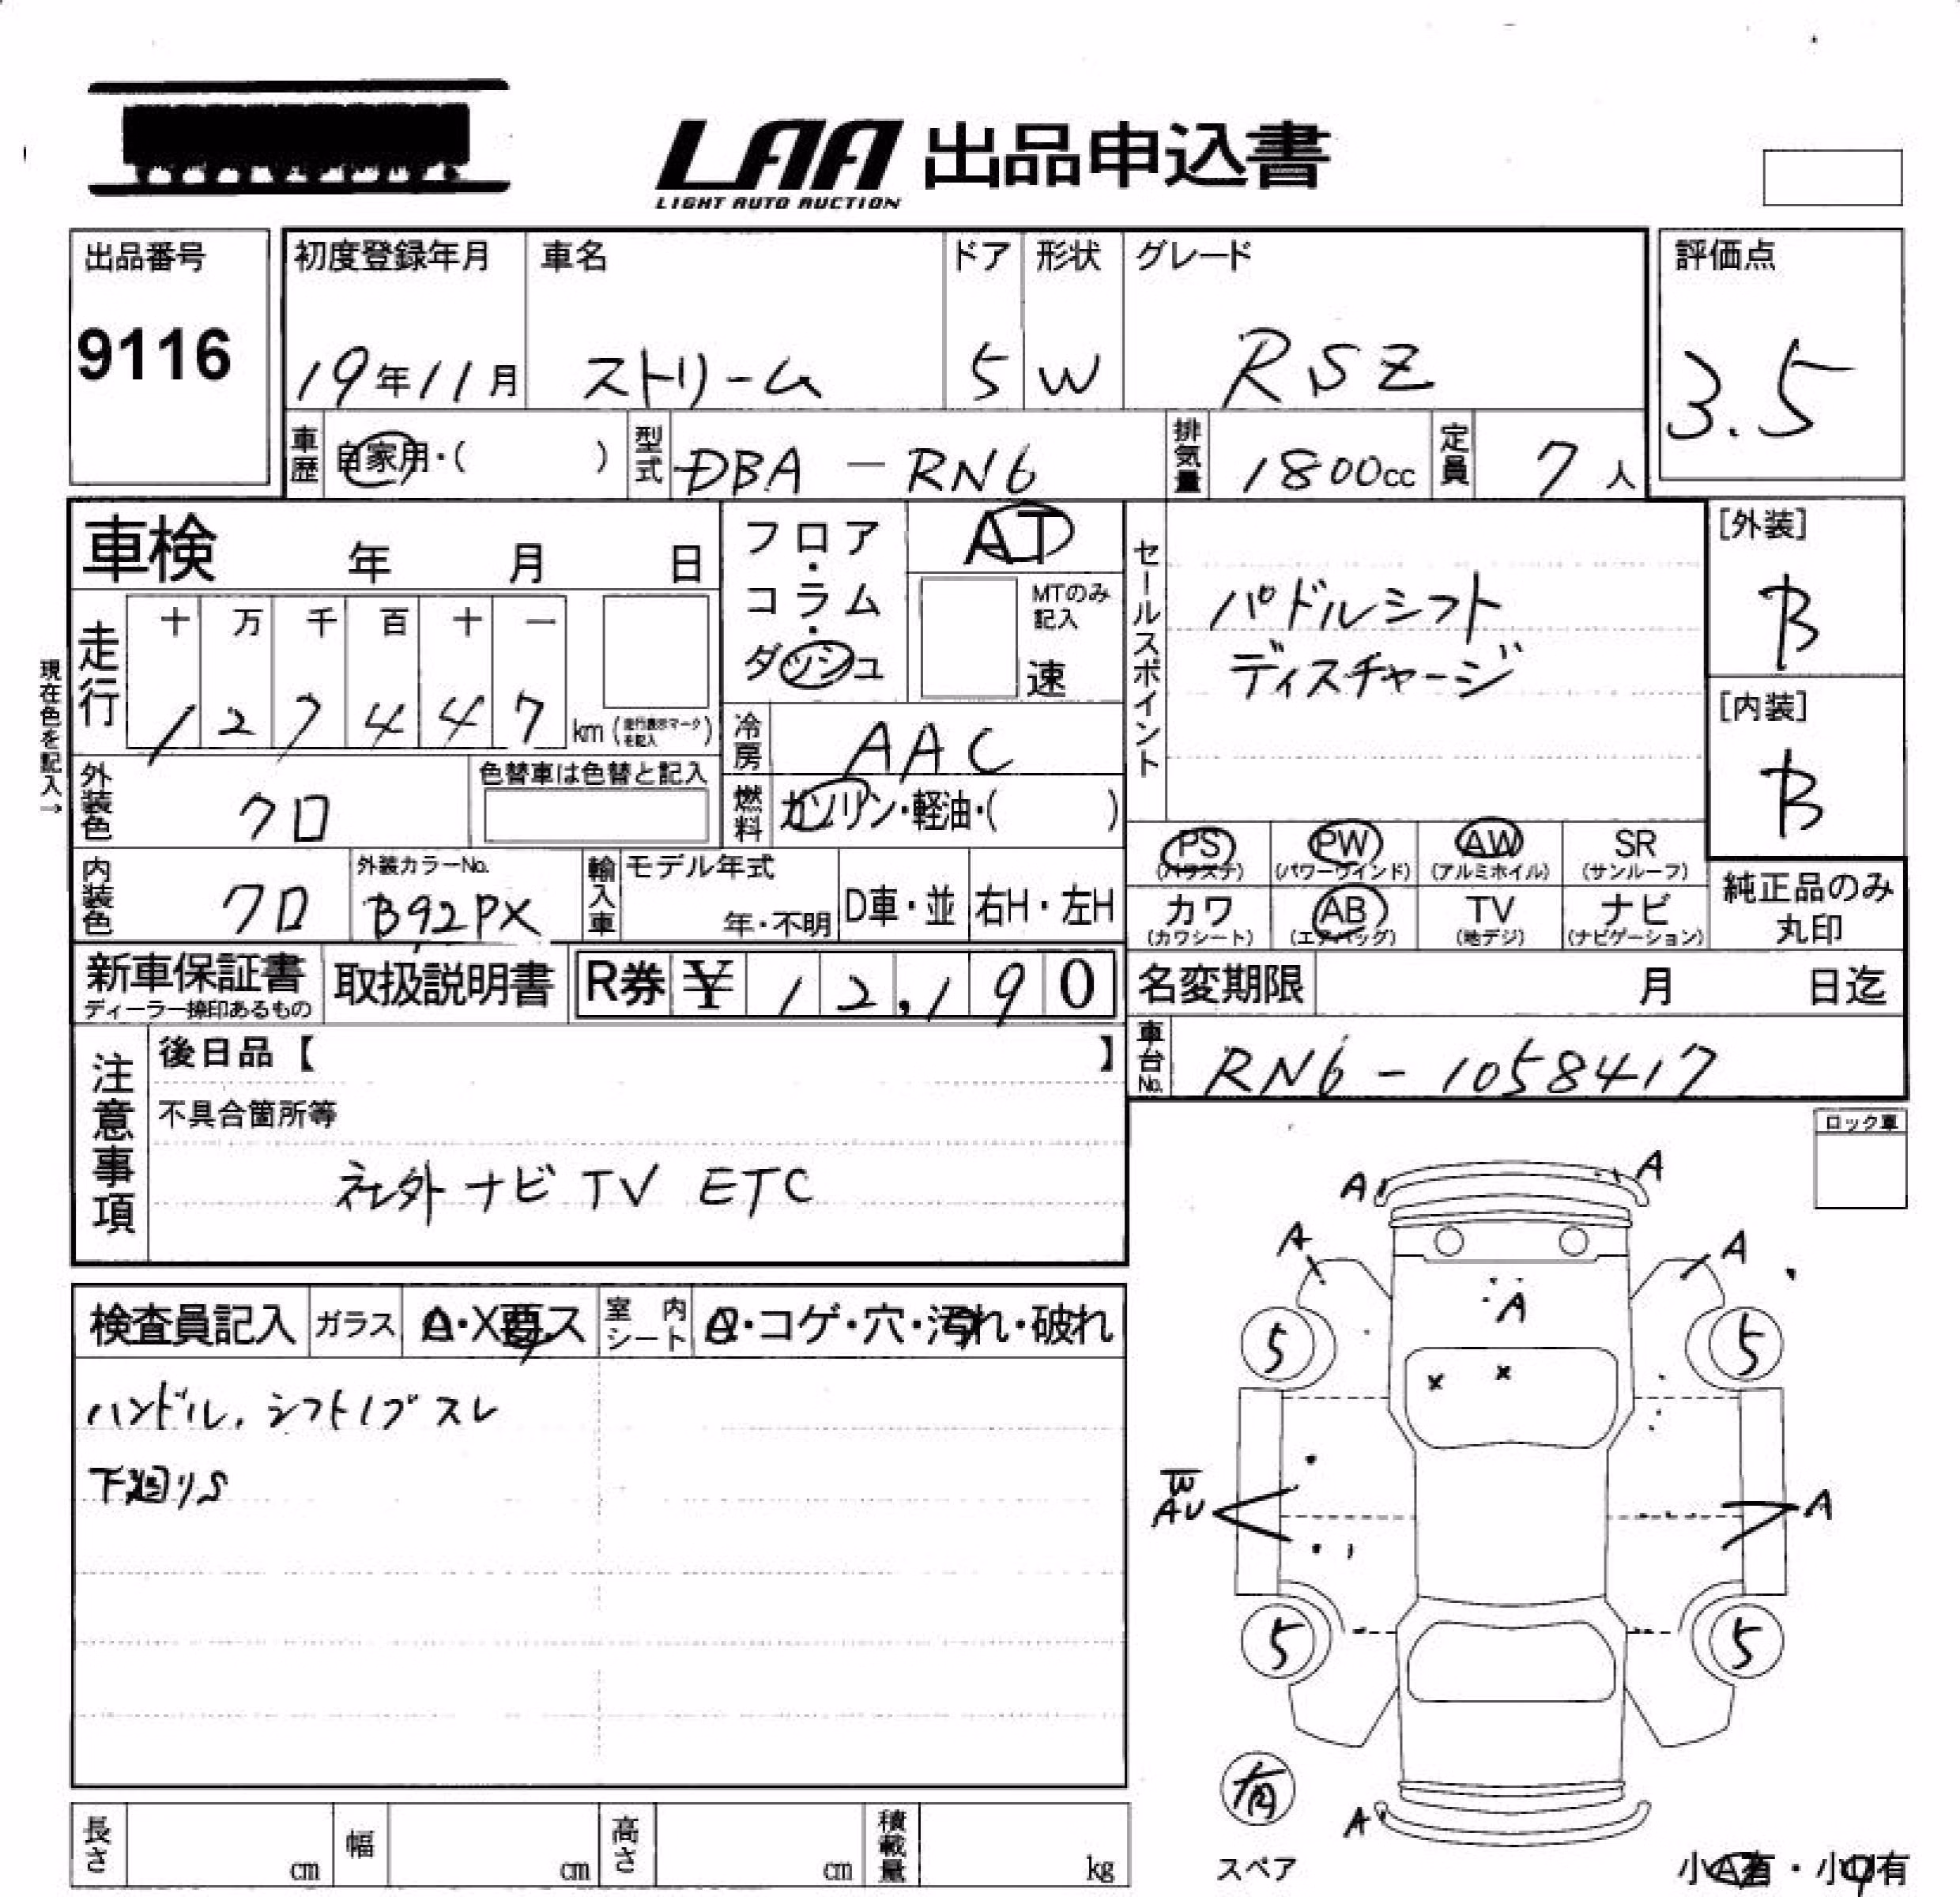 LAA 出品申込書
LIGHT AUTO AUCTION
出品番号
9116
初度登録年月
19年11月
車名
ストリーム
ドア
5
形状
W
グレード
RSZ
評価点
3.5
車歴
自家用・( )
型式
DBA - RN6
排気量
1800cc
定員
7人
車検 年 月 日
フロア・コラム・ダッシュ
AT
MTのみ記入
速
セールスポイント
パドルシフト
ディスチャージ
[外装]
B
[内装]
B
現在色を記入→
走行
十 万 千 百 十 一
1 2 7 4 4 7
km (走行表示マークを記入)
冷房
AAC
外装色
クロ
色替車は色替と記入
燃料
ガソリン・軽油・( )
PS (パワステ)
PW (パワーウインド)
AW (アルミホイル)
SR (サンルーフ)
カワ (カワシート)
AB (エアバッグ)
TV (地デジ)
ナビ (ナビゲーション)
純正品のみ丸印
内装色
クロ
外装カラーNo.
B92PX
輸入車
モデル年式
年・不明
D車・並
右H・左H
新車保証書
ディーラー捺印あるもの
取扱説明書
R券 ¥ 12,190
名変期限 月 日迄
車台No.
RN6 - 1058417
注意事項
後日品【 】
不具合箇所等
社外ナビ TV ETC
ロック車
検査員記入
ガラス
A・X要ス
室内シート
・コゲ・穴・汚れ・破れ
ハンドル、シフトノブスレ
下廻りS
A A
A A
A
5 5
x x
W
AU
A
5 5
有
A
スペア
小A有・小U有
長さ cm
幅 cm
高さ cm
積載量 kg